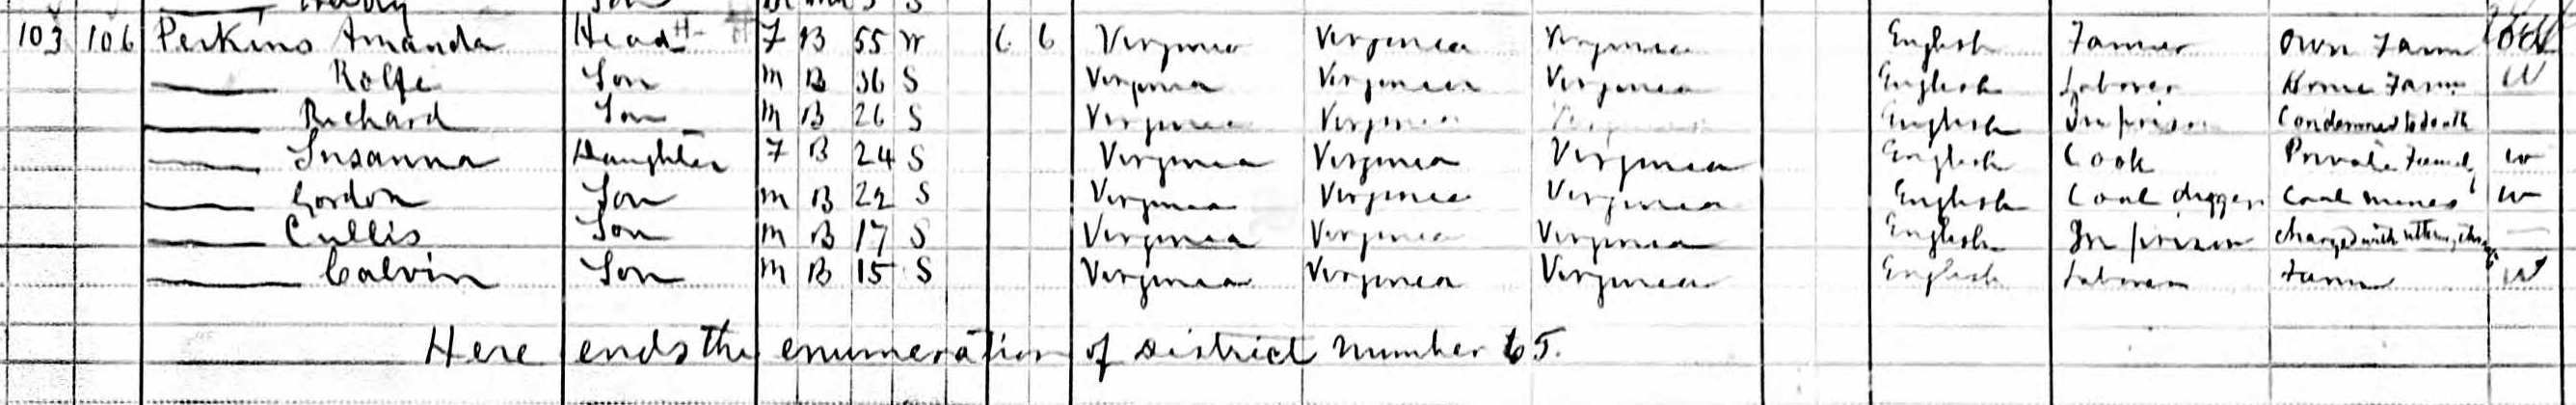 Son S
103 106 Perkins Amanda Head F B 55 W 6 6 Virginia Virginia Virginia English Farmer Own Farm
Rolfe Son M B 36 S Virginia Virginia Virginia English Laborer Home Farm W
Richard Son M B 26 S Virginia Virginia English In prison Condemned to death
Susanna Daughter F B 24 S Virginia Virginia Virginia English Cook Private Family W
Gordon Son M B 22 S Virginia Virginia Virginia English Coal digger Coal mines W
Cullis Son M B 17 S Virginia Virginia Virginia English In prison charged with
Calvin Son M B 15 S Virginia Virginia Virginia English Laborer Farm W
Here ends the enumeration of District Number 65.